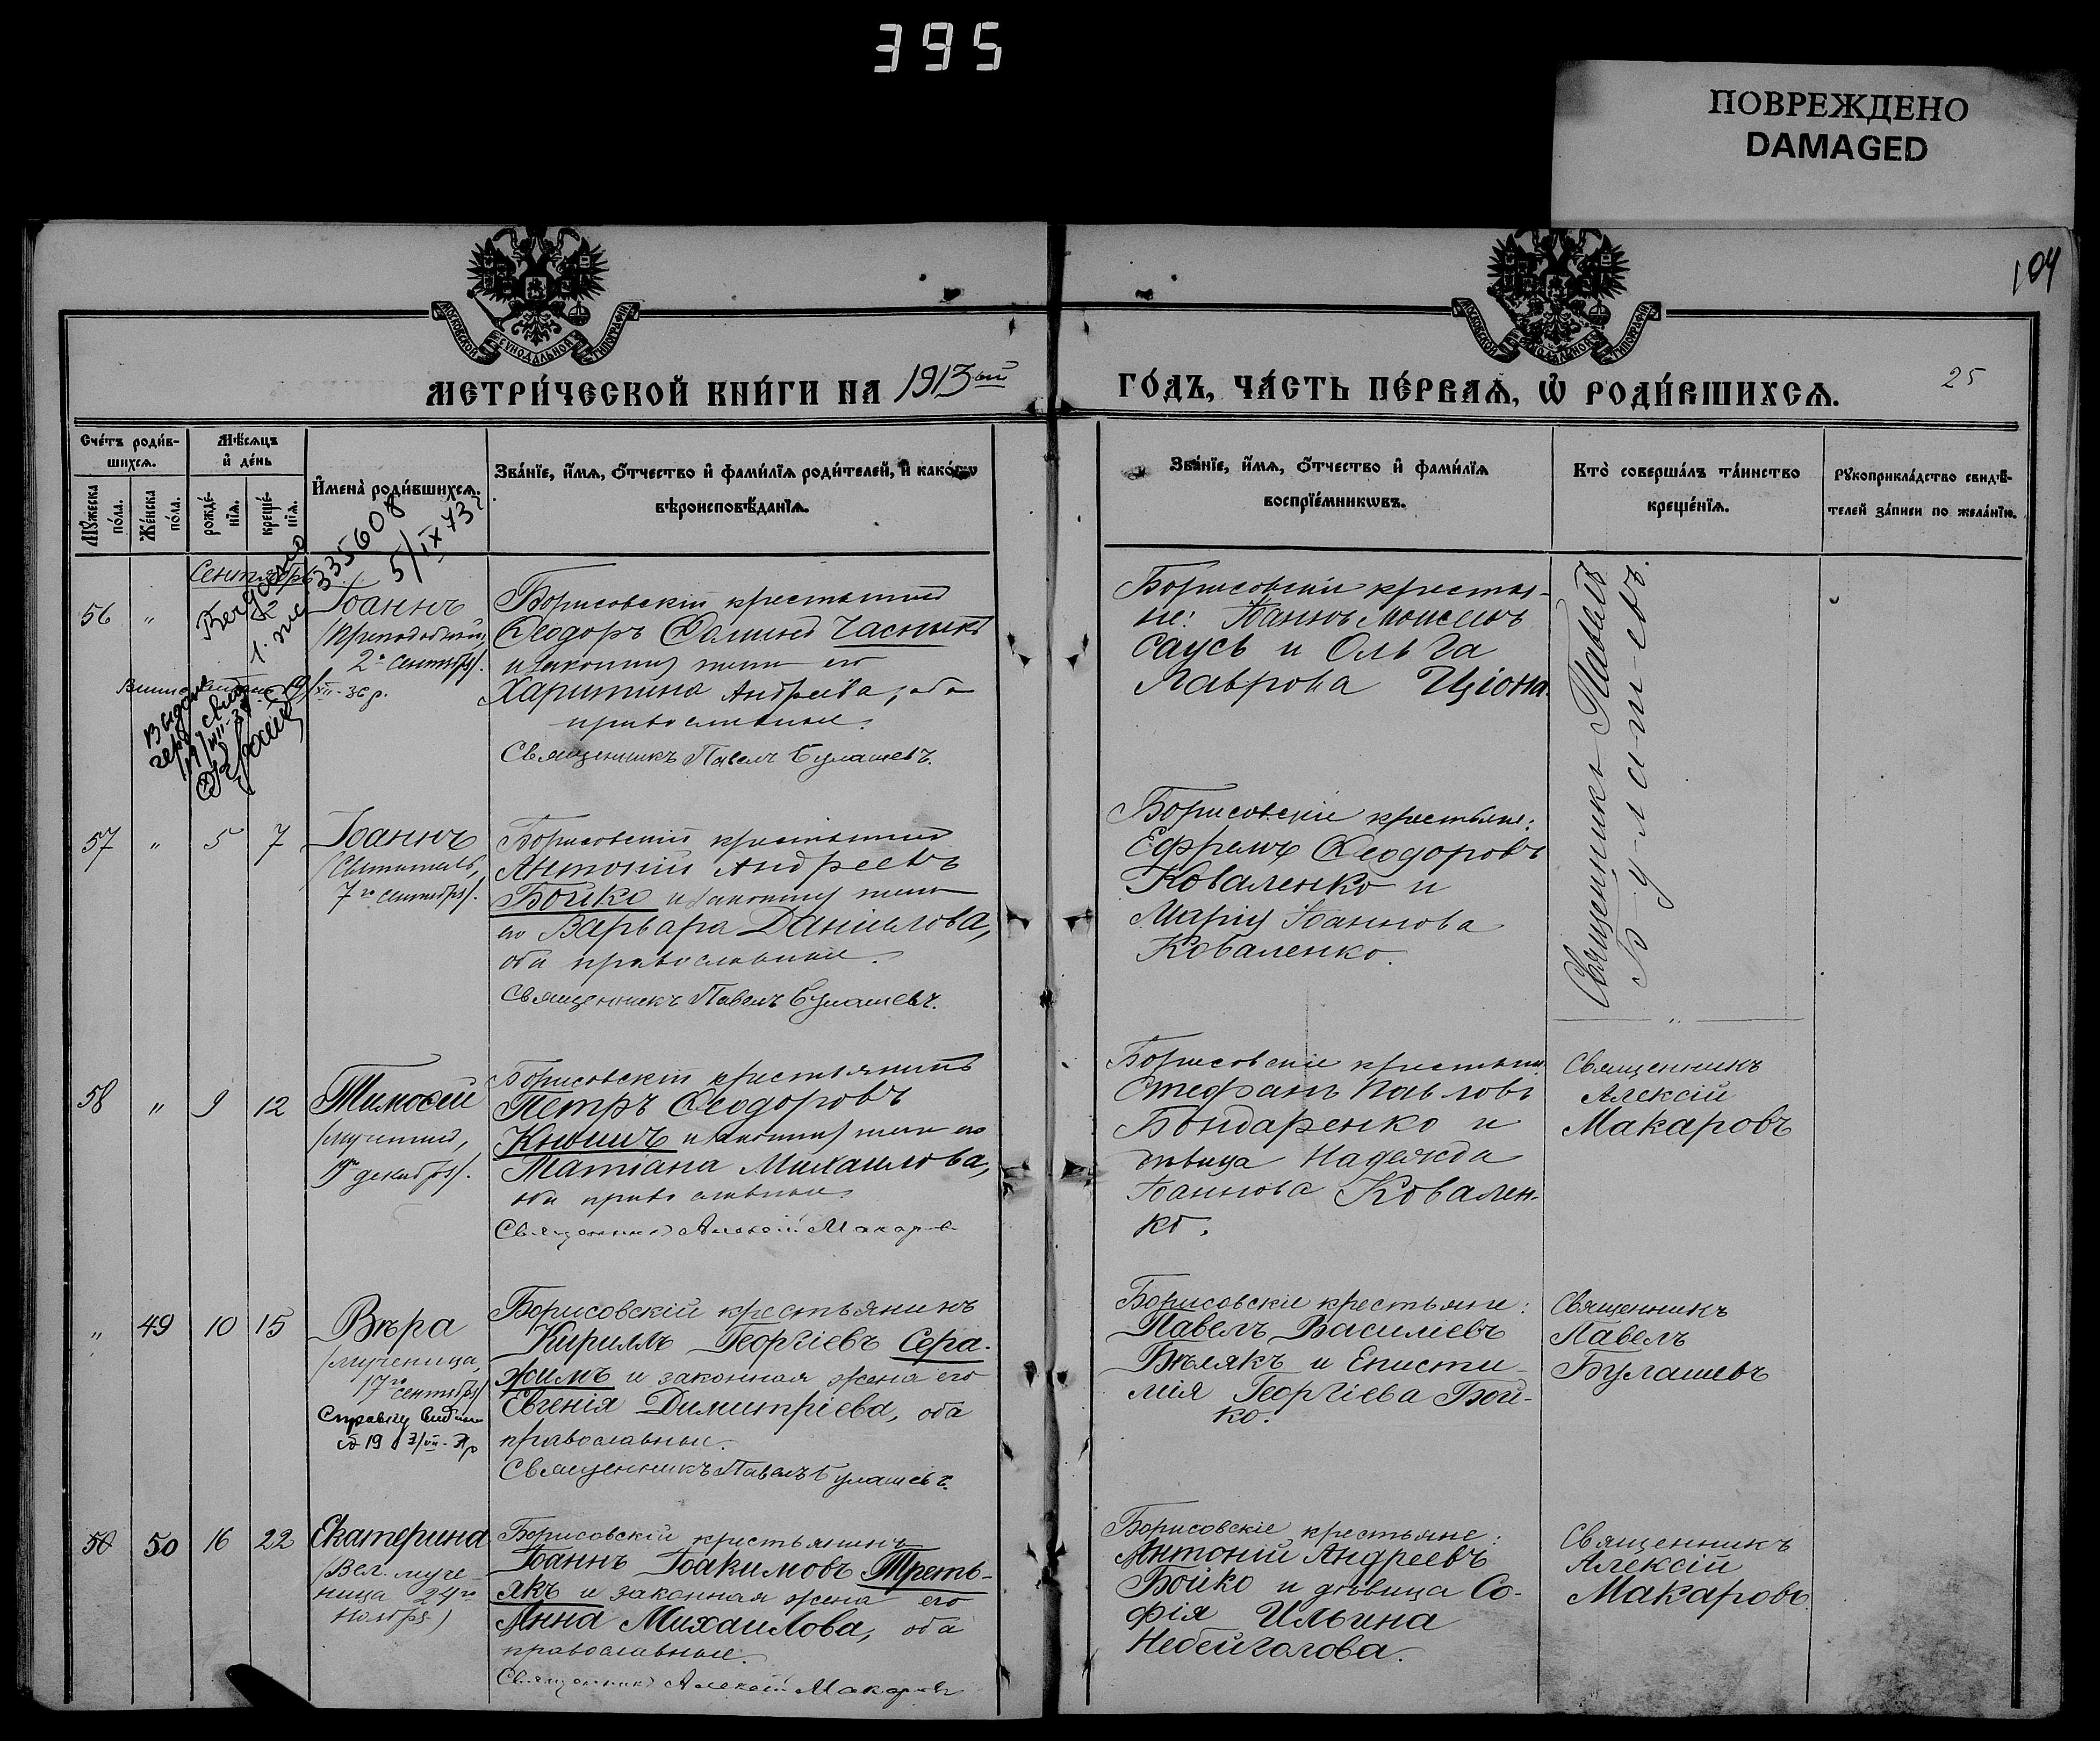 395
ПОВРЕЖДЕНО
DAMAGED
104
МОСКОВСКОЙ СУНОДАЛЬНОЙ ТИПОГРАФІИ
МОСКОВСКОЙ СУНОДАЛЬНОЙ ТИПОГРАФІИ
МЕТРИ́ЧЕСКОЙ КНИ́ГИ НА 1913ый
ГО́ДЪ, ЧА́СТЬ ПЕ́РВАѦ, Ѡ҆ РОДИ́ВШИХСѦ.
25
Сче́тъ роди́в-
шихсѧ.
Мѣ́сѧцъ
и҆ де́нь
Мꙋ́жеска
по́ла.
Же́нска
по́ла.
рожде́-
нїѧ.
креще́-
нїѧ.
И҆мена̀ роди́вшихсѧ.
Зва́нїе, и҆́мѧ, ѻ҆́тчество и҆ фами́лїѧ роди́телей, и҆ како́гѡ
вѣроисповѣ́данїѧ.
Зва́нїе, и҆́мѧ, ѻ҆́тчество и҆ фами́лїѧ
воспрїе́мникѡвъ.
Кто̀ соверша́лъ та́инство
креще́нїѧ.
Рꙋкоприкла́дство свидѣ́-
телей за́писи по жела́нїю.
335608
5/IX 73г
Сентябрь
56 " 2
Іоаннъ
/преподобный,
2го сентября/.
Борисовскій крестьянинъ
Ѳеодоръ Ѳоминъ Часныкъ
и законная жена его
Харитина Андреева, оба
православные.
Священникъ Павелъ Булашевъ.
Борисовскіе крестья-
не: Іоаннъ Моисеевъ
Саусь и Ольга
Лаврова Ціона.
Священникъ Павелъ
Булашевъ.
57 " 5 7
Іоаннъ
/Святитель,
7го сентября/.
Борисовскій крестьянинъ
Антоній Андреевъ
Бойко и законная жена
его Варвара Даніилова,
оба православные.
Священникъ Павелъ Булашевъ.
Борисовскіе крестьяне:
Ефремъ Ѳеодоровъ
Коваленко и
Марія Іоаннова
Коваленко.
58 " 9 12
Тимоѳей
/мученикъ,
19го декабря/.
Борисовскій крестьянинъ
Петръ Ѳеодоровъ
Кнышъ и законная жена его
Татіана Михаилова,
оба православные.
Священникъ Алексій Макаровъ
Борисовскіе крестьяне
Стефанъ Павловъ
Бондаренко и
дѣвица Надежда
Іоаннова Ковален-
ко.
Священникъ
Алексій
Макаровъ
" 49 10 15
Вѣра
/мученица,
17го сентября/
Справку выдано
19 3/VII-
Борисовскій крестьянинъ
Кириллъ Георгіевъ Сера-
жимъ и законная жена его
Евгенія Димитріева, оба
православные.
Священникъ Павелъ Булашевъ.
Борисовскіе крестьяне:
Павелъ Василіевъ
Бѣлякъ и Еписти-
мія Георгіева Бой-
ко.
Священникъ
Павелъ
Булашевъ
50 50 16 22
Екатерина
/Вел. муче-
ница 24го
ноября/
Борисовскій крестьянинъ
Іоаннъ Іоакимовъ Треть-
якъ и законная жена его
Анна Михаилова, оба
православные.
Священникъ Алексій Макаровъ
Борисовскіе крестьяне:
Антоній Андреевъ
Бойко и дѣвица Со-
фія Ильина
Небейголова.
Священникъ
Алексій
Макаровъ.